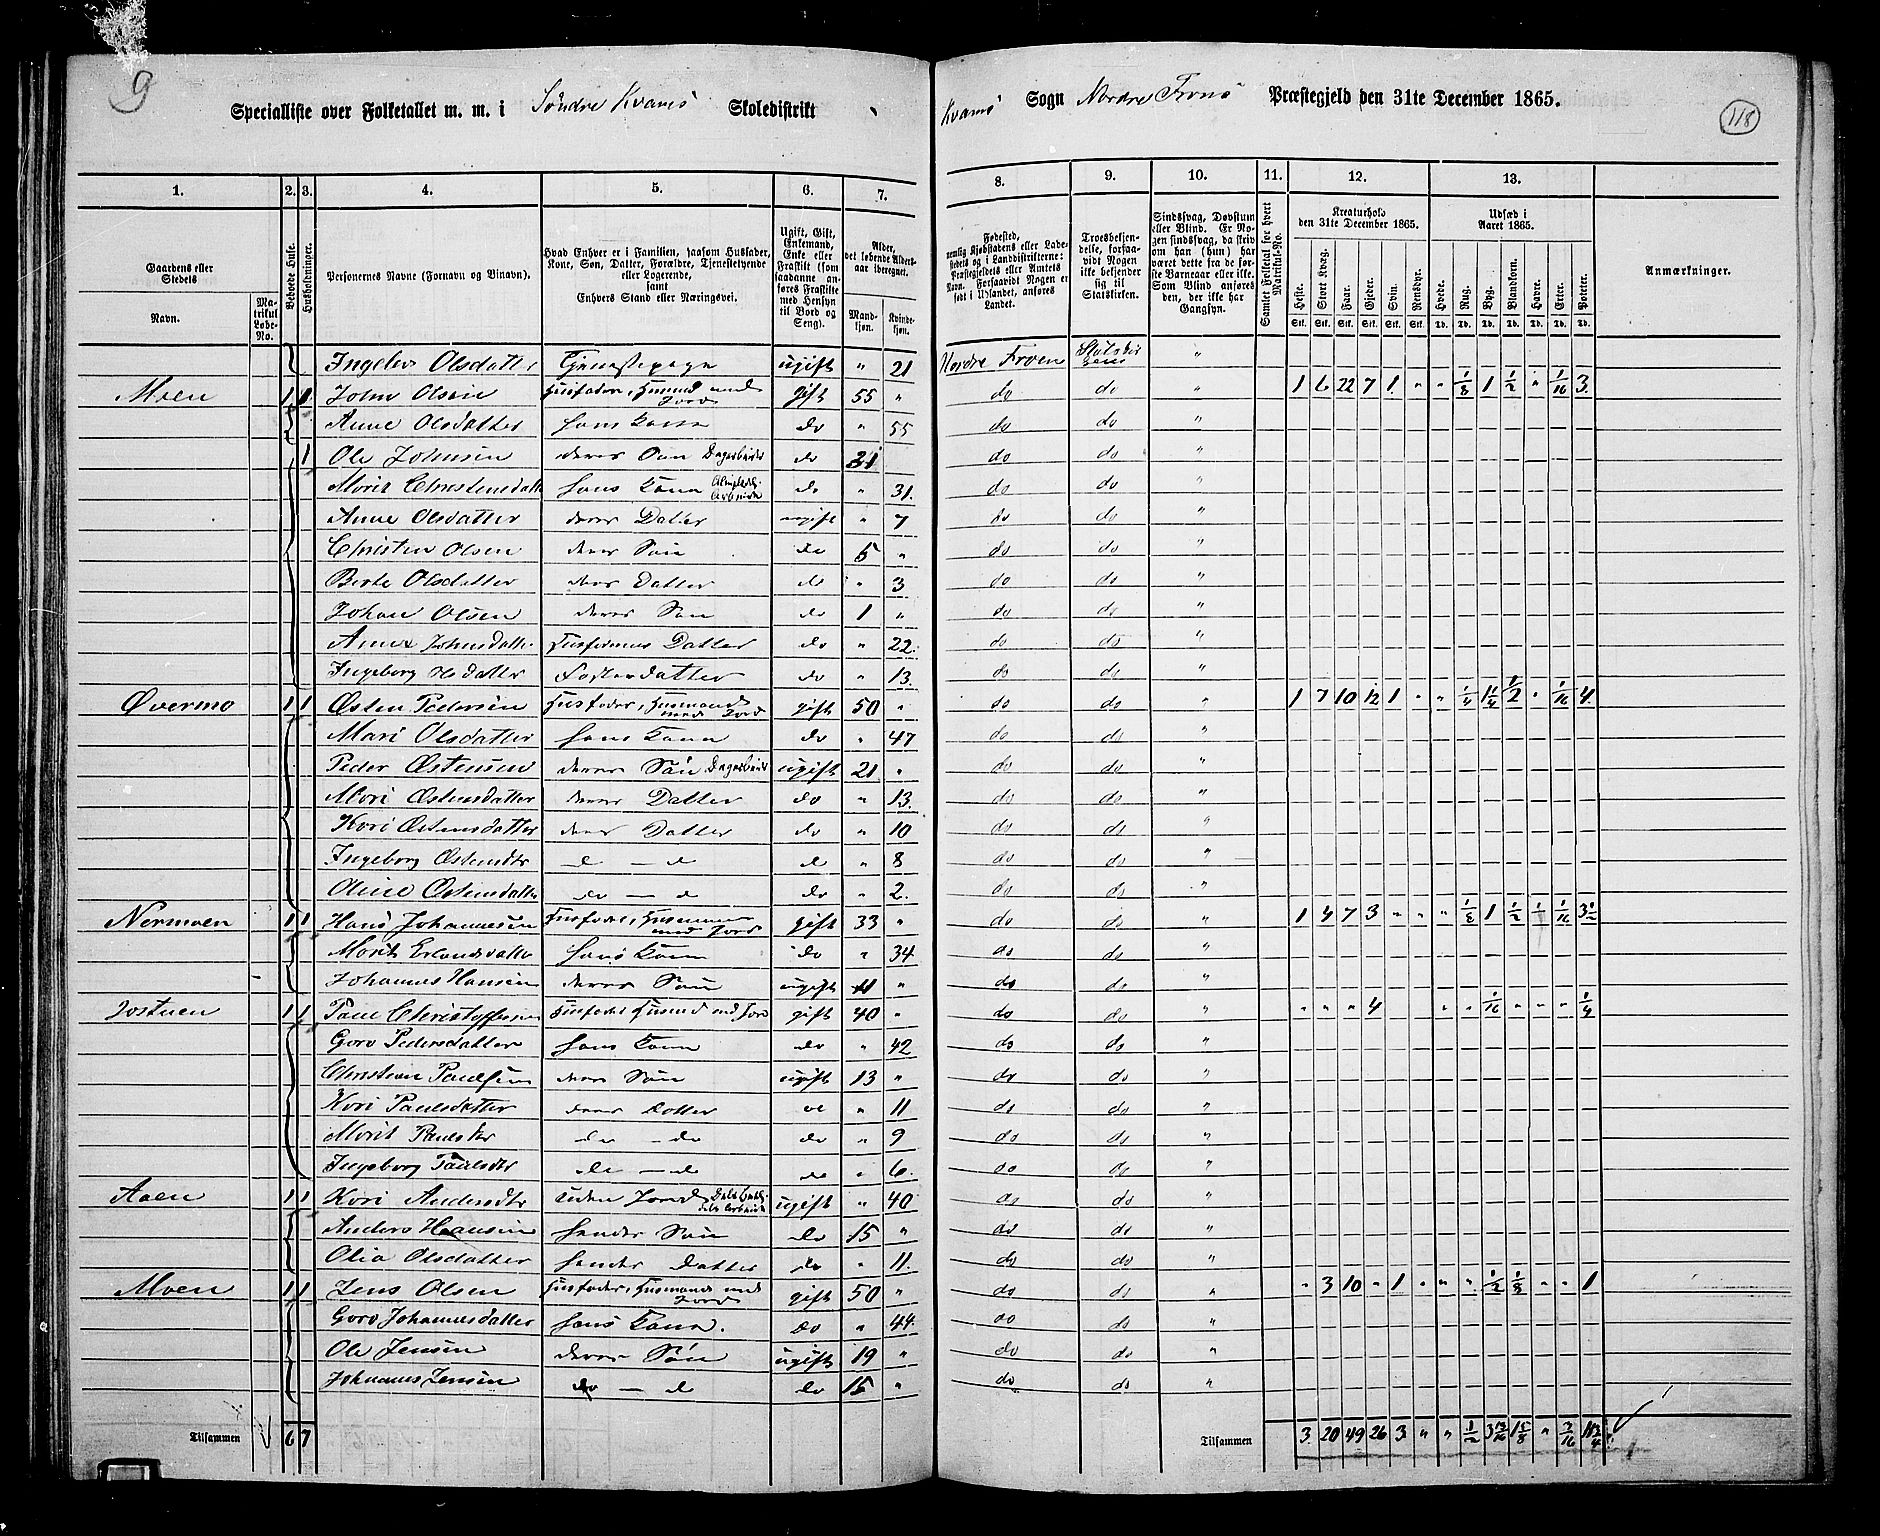 9
Specialliste over Folketallet m. m. i Söndre Kvams Skoledistrikt
Kvams Sogn Nordre Frons Præstegjeld den 31te December 1865.
118
1. 2. 3. 4. 5. 6. 7. 8. 9. 10. 11. 12. 13.
Gaardens eller Stedets Navn.
Matrikul Løbe-No.
Beboede Huse.
Husholdninger.
Personernes Navne (Fornavn og Tilnavn).
Hvad Enhver er i Familien, saasom Husfader, Kone, Søn, Datter, Forældre, Tjenestetyende eller Logerende, samt Enhvers Stand eller Næringsvei.
Ugift, Gift, Enkemand, Enke eller Fraskilt (som saadanne anføres Fraskilte med Hensyn til Bord og Seng).
Alder, det løbende Aldersaar iberegnet.
Mandkjøn. Kvindekjøn.
Fødested, nemlig Kjøbstadens eller Ladestedets og i Landdistrikterne: Præstegjeldets eller Amtets Navn. Forsaavidt Nogen er født i Udlandet, anføres Landet.
Troesbekjendelse, forsaavidt Nogen ikke bekjender sig til Statskirken.
Sindssvag, Døvstum eller Blind. Er Nogen sindssvag, da skriv om han (hun) har været dette fra de første Barneaar eller ikke. Som Blind anføres den, der ikke har Gangsyn.
Samlet Folketal for hvert Matrikul-No.
Kreaturhold den 31te December 1865.
Heste. Stort Kvæg. Faar. Gjeder. Svin. Rensdyr.
Udsæd i Aaret 1865.
Hvede. Rug. Byg. Blandkorn. Havre. Erter. Poteter.
Anmærkninger.
Ingeb Olsdatter Tjenestepige ugift " 21 Nordre Froen "
Moen 1 1 John Olsen Husfader, Husmd med Jord gift 55 " do do " 1 6 22 7 1 " " 1/8 1 1/2 " 1/16 3
Anne Olsdatter hans Kone do " 55 do do "
1 Ole Johnsen deres Søn Dagarbeider do 31 do do "
Marit Christensdatt hans Kone do " 31. do do "
Anne Olsdatter deres Datter ugift " 7 do do "
Christen Olsen deres Søn do 5 " do do "
Birte Olsdatter deres Datter do " 3 do do "
Johan Olsen deres Søn do 1 " do do "
Anne Johnsdatte Husfaderens Datter do " 22 do do "
Ingeborg datter Fosterdatter do " 13. do do "
Øvermo 1 1 Østen Pedersen Husfader, Husmand med Jord gift 50 " do do " 1 7 10 12 1 " " 1/4 1 1/4 1/2 " 1/16 4
Mari Olsdatter hans Kone do " 47 do do "
Peder Østensen deres Søn Dagarbeid ugift 21 " do do "
Mari Østensdatter deres Datter do " 13. do do "
Kari Østensdatter deres Datter do " 10 do do "
Ingeborg Østensdtr d — d d " 8 do do "
Oline Østensdatte do — d do " 2. do do "
Nermoen 1 1 Hans Johannesen Husfader, Husmand med Jord gift 33 " do do " 1 4 7 3 " " " 1/8 1 1/2 1/16 3 1/2
Marit Erlandsdatte hans Kone do " 34 do do "
Johannes Hansen deres Søn ugift 11 " do do "
Jostuen 1 1 Paul Christoffersen Husfader Husmd med Jord gift 40 " do do " " " " 4 " " 1/16 " " " 1/4
Goro Pedersdatter hans Kone do " 42 do do "
Christian Paulsen deres Søn ugift 13 " do do "
Kari Paulsdatter deres Datter do " 11 do do "
Marit Paulsdtr do — do do " 9 do do "
Ingeborg Paulsdtr do — do do " 6. do do "
Aaen 1 1 Kari Andersdtr uden Jord ugift " 40 do do "
Anders Hansen hendes Søn do 15 " do do "
Olia Olsdatter hendes Datter do " 11. do do "
Moen 1 1 Jens Olsen Husfader, Husmand med Jord gift 50 " do do " " 3 10 " 1 " " " 1/2 1/8 " " 1
Goro Johannesdatter hans Kone. do " 44. do do "
Ole Jensen deres Søn ugift 19 " do do "
Johannes Jensen do — d do 15 " do do "
Tilsammen 6 7
Tilsammen 3. 20 49 26 3 " " 1/2 3 13/16 1 5/8 " 3/16 11 3/4